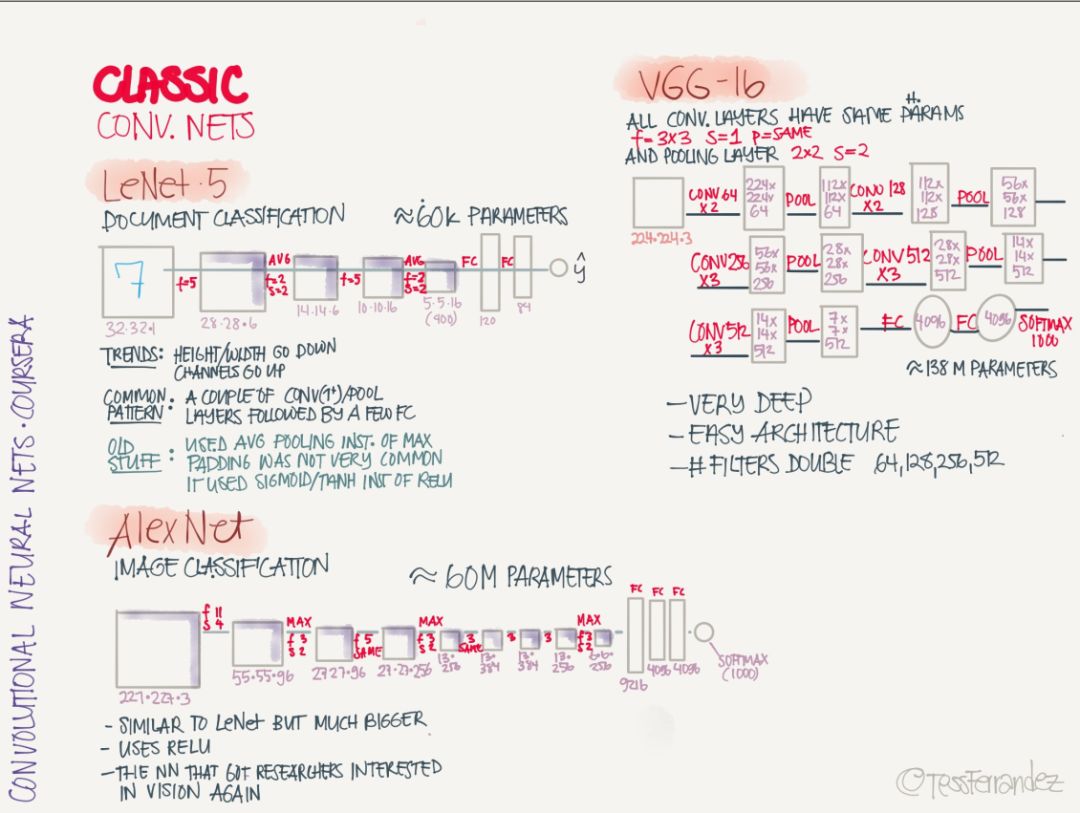 CLASSIC
CONV. NETS
LeNet·5
DOCUMENT CLASSIFICATION ≈60K PARAMETERS
7
f=5
AVG
f=2
S=2
f=5
AVG
f=2
S=2
FC
FC
ŷ
32·32·1
28·28·6
14·14·6
10·10·16
5·5·16
(400)
120
84
TRENDS: HEIGHT/WIDTH GO DOWN
CHANNELS GO UP
COMMON PATTERN: A COUPLE OF CONV(1+)/POOL
LAYERS FOLLOWED BY A FEW FC
OLD STUFF: USED AVG POOLING INST. OF MAX
PADDING WAS NOT VERY COMMON
IT USED SIGMOID/TANH INST OF RELU
AlexNet
IMAGE CLASSIFICATION ≈ 60M PARAMETERS
f 11
S 4
MAX
f 3
S 2
f 5
SAME
MAX
f 3
S 2
3
SAME
3
3
MAX
f 3
S 2
FC FC FC
227·227·3
55·55·96
27·27·96
27·27·256
13·
256
13·
384
13·
384
13·
256
6·6·
256
9216
4096
4096
SOFTMAX
(1000)
- SIMILAR TO LeNet BUT MUCH BIGGER
- USES RELU
- THE NN THAT GOT RESEARCHERS INTERESTED
IN VISION AGAIN
VGG-16
ALL CONV. LAYERS HAVE SAME H. PARAMS
f=3x3 S=1 P=SAME
AND POOLING LAYER 2x2 S=2
224·224·3
CONV 64
X2
224x
224x
64
POOL
112x
112x
64
CONV 128
X2
112x
112x
128
POOL
56x
56x
128
CONV 256
X3
56x
56x
256
POOL
28x
28x
256
CONV 512
X3
28x
28x
512
POOL
14x
14x
512
CONV 512
X3
14x
14x
512
POOL
7x
7x
512
FC
4096
FC
4096
SOFTMAX
1000
≈138 M PARAMETERS
- VERY DEEP
- EASY ARCHITECTURE
- # FILTERS DOUBLE 64,128,256,512
CONVOLUTIONAL NEURAL NETS · COURSERA
@TessFerrandez